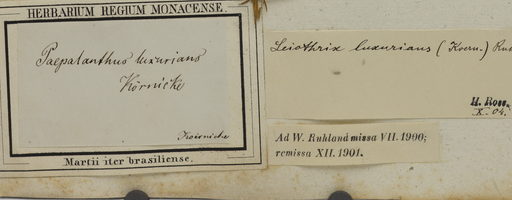 HERBARIUM REGIUM MONACENSE.
Paepalanthus luxurians
Körnicke
Koernicke
Martii iter brasiliense.
Leiothrix luxurians (Koern.) Ruhl
H. Ross.
X. 04.
Ad W. Ruhland missa VII. 1900;
remissa XII. 1901.